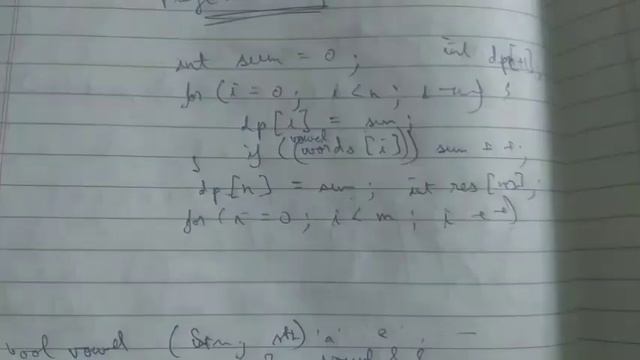 int sum = 0 ; int dp[n+1];
for (i = 0 ; i < n ; i++) {
dp[i] = sum;
if (vowel(words[i])) sum ++;
}
dp[n] = sum ; int res[m];
for (i = 0 ; i < m ; i ++)
bool vowel (string str) 'a' e